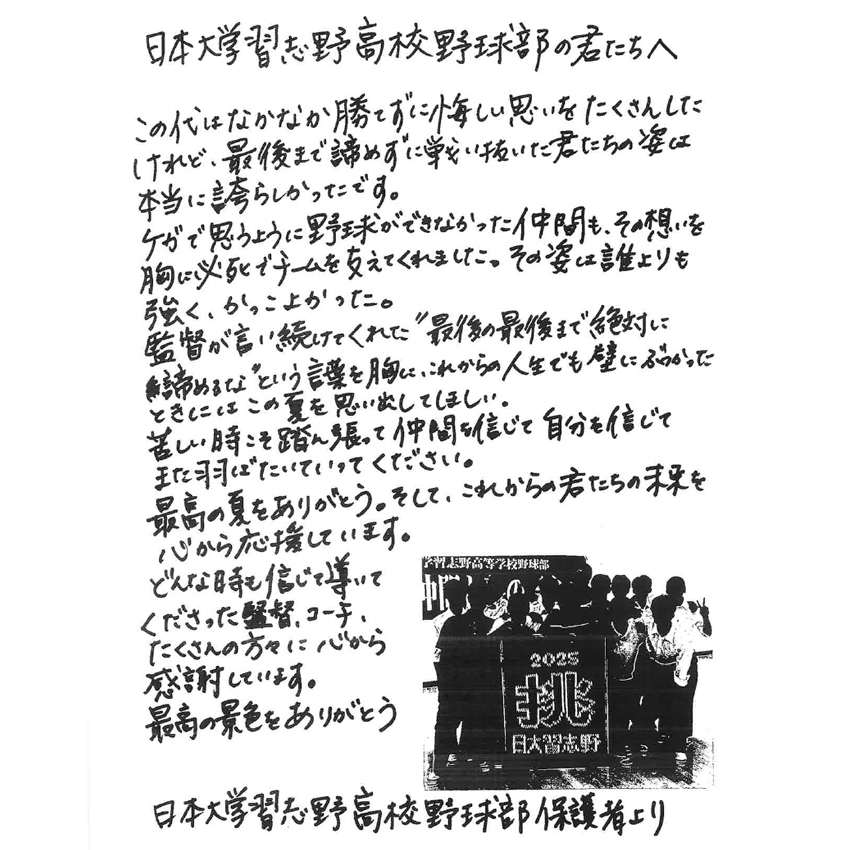 日本大学習志野高校野球部の君たちへ
この代はなかなか勝てずに悔しい思いをたくさんした
けれど、最後まで諦めずに戦い抜いた君たちの姿は
本当に誇らしかったです。
ケガで思うように野球ができなかった仲間も、その想いを
胸に必死でチームを支えてくれました。その姿は誰よりも
強く、かっこよかった。
監督が言い続けてくれた"最後の最後まで絶対に
諦めるな"という言葉を胸に、これからの人生でも壁にぶつかった
ときにはこの夏を思い出してほしい。
苦しい時こそ踏ん張って仲間を信じて自分を信じて
また羽ばたいていってください。
最高の夏をありがとう。そして、これからの君たちの未来を
心から応援しています。
どんな時も信じて導いて
くださった監督、コーチ、
たくさんの方々に心から
感謝しています。
最高の景色をありがとう
学習志野高等学校野球部
2025
挑
日大習志野
日本大学習志野高校野球部保護者より